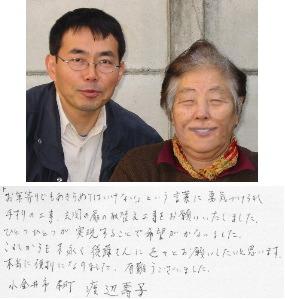 「お年寄りでもあきらめてはいけない」という言葉に 勇気づけられ
手すりの工事、玄関の扉の取替え工事をお願いいたしました。
ひとつひとつが 実現することで希望がかないました。
これからも末永く後藤さんに 近くとお願いしたいと思います。
本当に便利になりました。有難うございました。
小金井市 本町 渡辺壽子